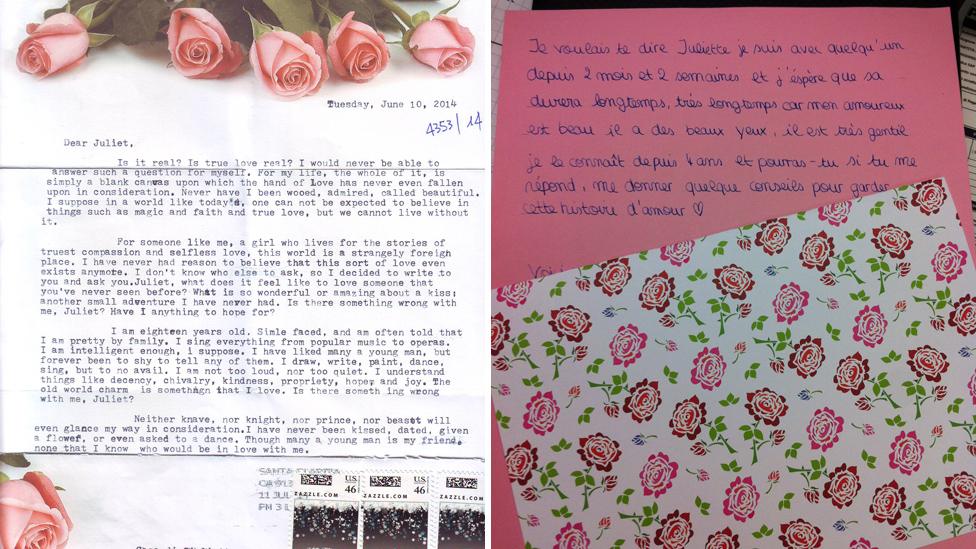 Tuesday, June 10, 2014
4353/14
Dear Juliet,
Is it real? Is true love real? I would never be able to
answer such a question for myself. For my life, the whole of it, is
simply a blank canvas upon which the hand of Love has never even fallen
upon in consideration. Never have I been wooed, admired, called beautiful.
I suppose in a world like today's, one can not be expected to believe in
things such as magic and faith and true love, but we cannot live without
it.
For someone like me, a girl who lives for the stories of
truest compassion and selfless love, this world is a strangely foreign
place. I have never had reason to believe that this sort of love even
exists anymore. I don't know who else to ask, so I decided to write to
you and ask you.Juliet, what does it feel like to love someone that
you've never seen before? What is so wonderful or amazing about a kiss;
another small adventure I have never had. Is there something wrong with
me, Juliet? Have I anything to hope for?
I am eighteen years old. Simle faced, and am often told that
I am pretty by family. I sing everything from popular music to operas.
I am intelligent enough, i suppose. I have liked many a young man, but
forever been to shy to tell any of them. I draw, write, paint, dance,
sing, but to no avail. I am not too loud, nor too quiet. I understand
things like decency, chivalry, kindness, propriety, hope, and joy. The
old world charm is something that I love. Is there somethi ng wrong
with me, Juliet?
Neither knave, nor knight, nor prince, nor beast will
even glance my way in consideration.I have never been kissed, dated, given
a flower, or even asked to a dance. Though many a young man is my friend,
none that I know who would be in love with me.
SANTA
CA 913
11 JUL
PM 3 L
U.S. 46
ZAZZLE.COM
U.S. 46
ZAZZLE.COM
ZAZZLE.COM
Je voulais te dire Juliette je suis avec quelqu'un
depuis 2 mois et 2 semaines et j'éspère que sa
durera longtemps, très longtemps car mon amoureux
est beau il a des beaux yeux, il est très gentil
je le connaît depuis 4 ans et pourras-tu si tu me
répond, me donner quelque conseils pour garder
cette histoire d'amour ♡